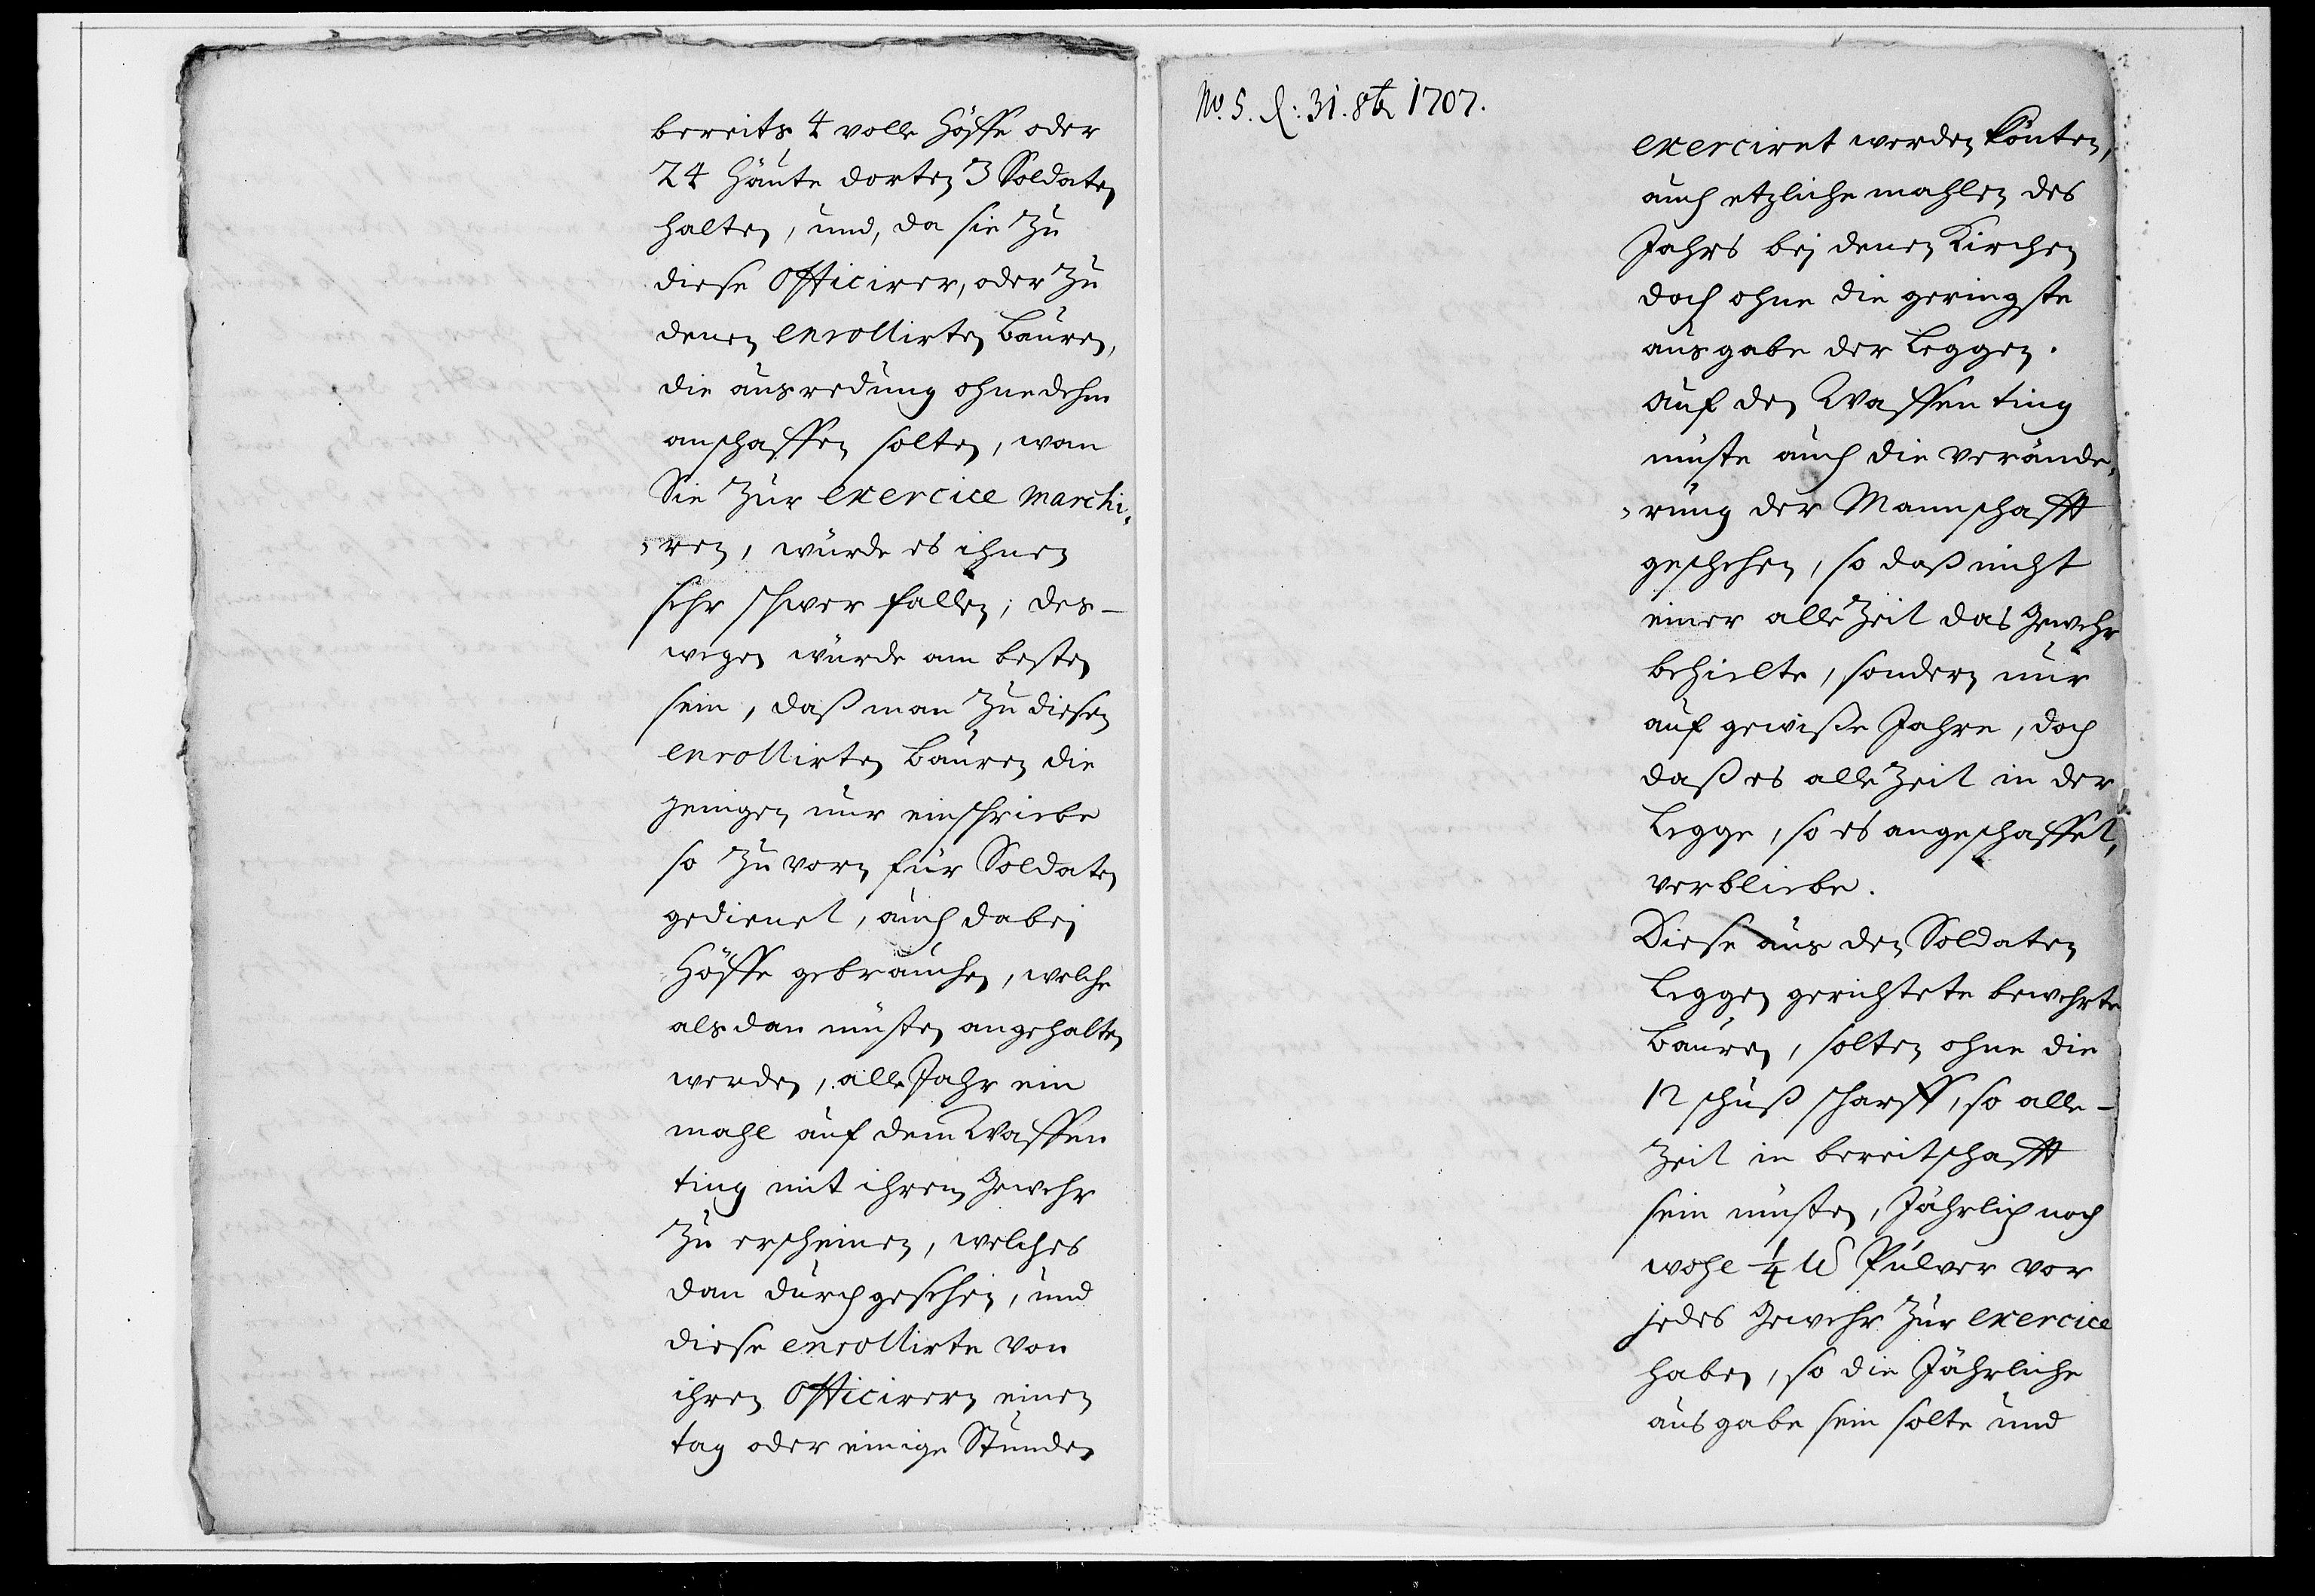 bereits 4 volle Höffe oder
24 Häute dorten 3 Soldaten
halten, und, da sie zu
diese Officirer, oder zu
denen enrollirten Bauren,
die ausredung ohne dehm
anschaffen solten, wan
Sie zur exercice marchi„
„ren, würde es ihnen
sehr schwer fallen; des-
wegen würde am besten
sein, daß man zu diesen
enrollirten Bauren die
jenigen nur einschriebe
so zuvorn für Soldaten
gedienet, auch dabej
Höffe gebrauchen, welche
alsdan müsten angehalten
werden, alle Jahr ein
mahl auf dem Waffen
ting mit ihrem Gewehr
zu erscheinen, welches
dan durchgesehen, und
diese enrollirte von
ihren Officirern einen
tag oder einige Stunden
No. 5. d: 31. 8br 1707.
exerciret werden könten,
auch etzliche mahlen des
Jahrs bej denen Kirchen
doch ohne die geringste
ausgabe der Leggen.
Auf den Waffen ting
müste auch die verände„
„rung der Mannschafft
geschehen, so daß nicht
einer alle Zeit das Gewehr
behielte, sondern nur
auf gewiße Jahre, doch
daß es alle Zeit in der
Legge, so es angeschaffet,
verbliebe.
Diese aus den Soldaten
Leggen gerichtete bewehrte
Bauren, solten ohne die
12 schuß scharff, so alle-
Zeit in bereitschafft
sein müsten, Jährlich noch
wohl ¼ ℔ Pulver vor
jedes Gewehr zur exercice
haben, so die Jährliche
ausgabe sein solte und